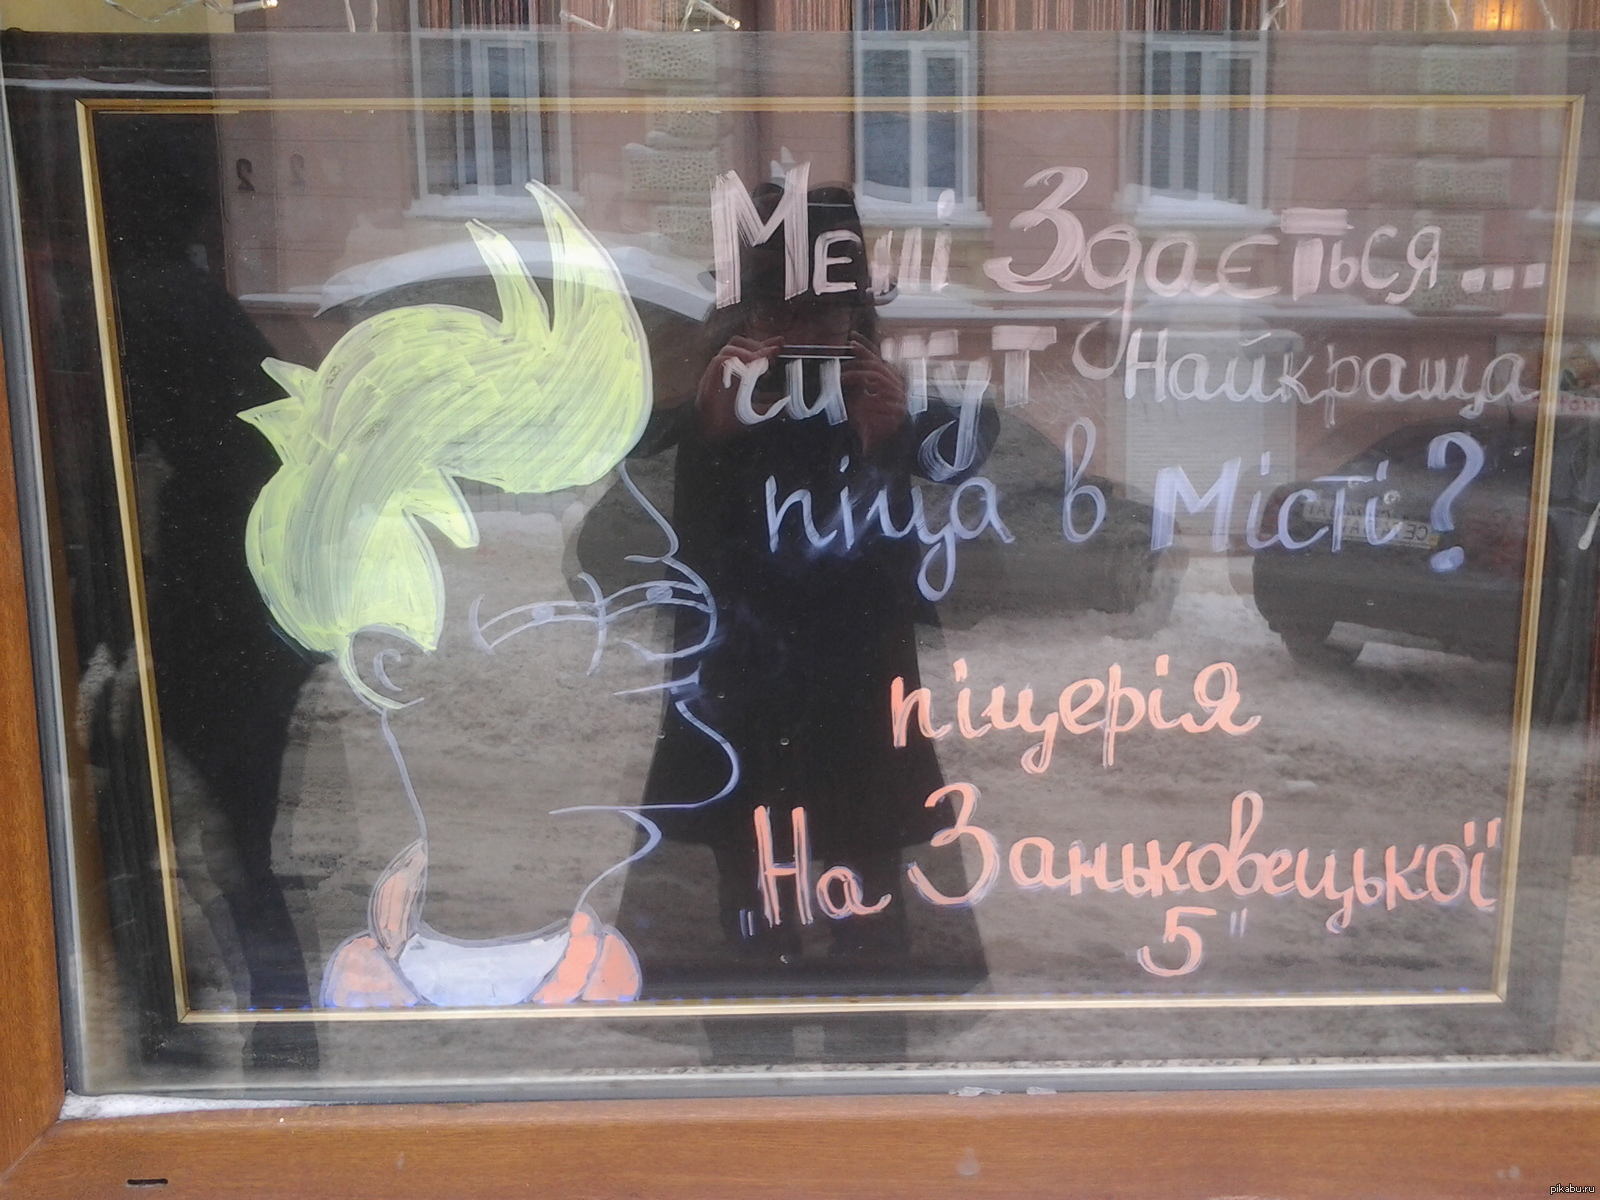 Мені Здається...
чи тут Найкраща
піца в місті?
піцерія
"На Заньковецької
5"
pikabu.ru